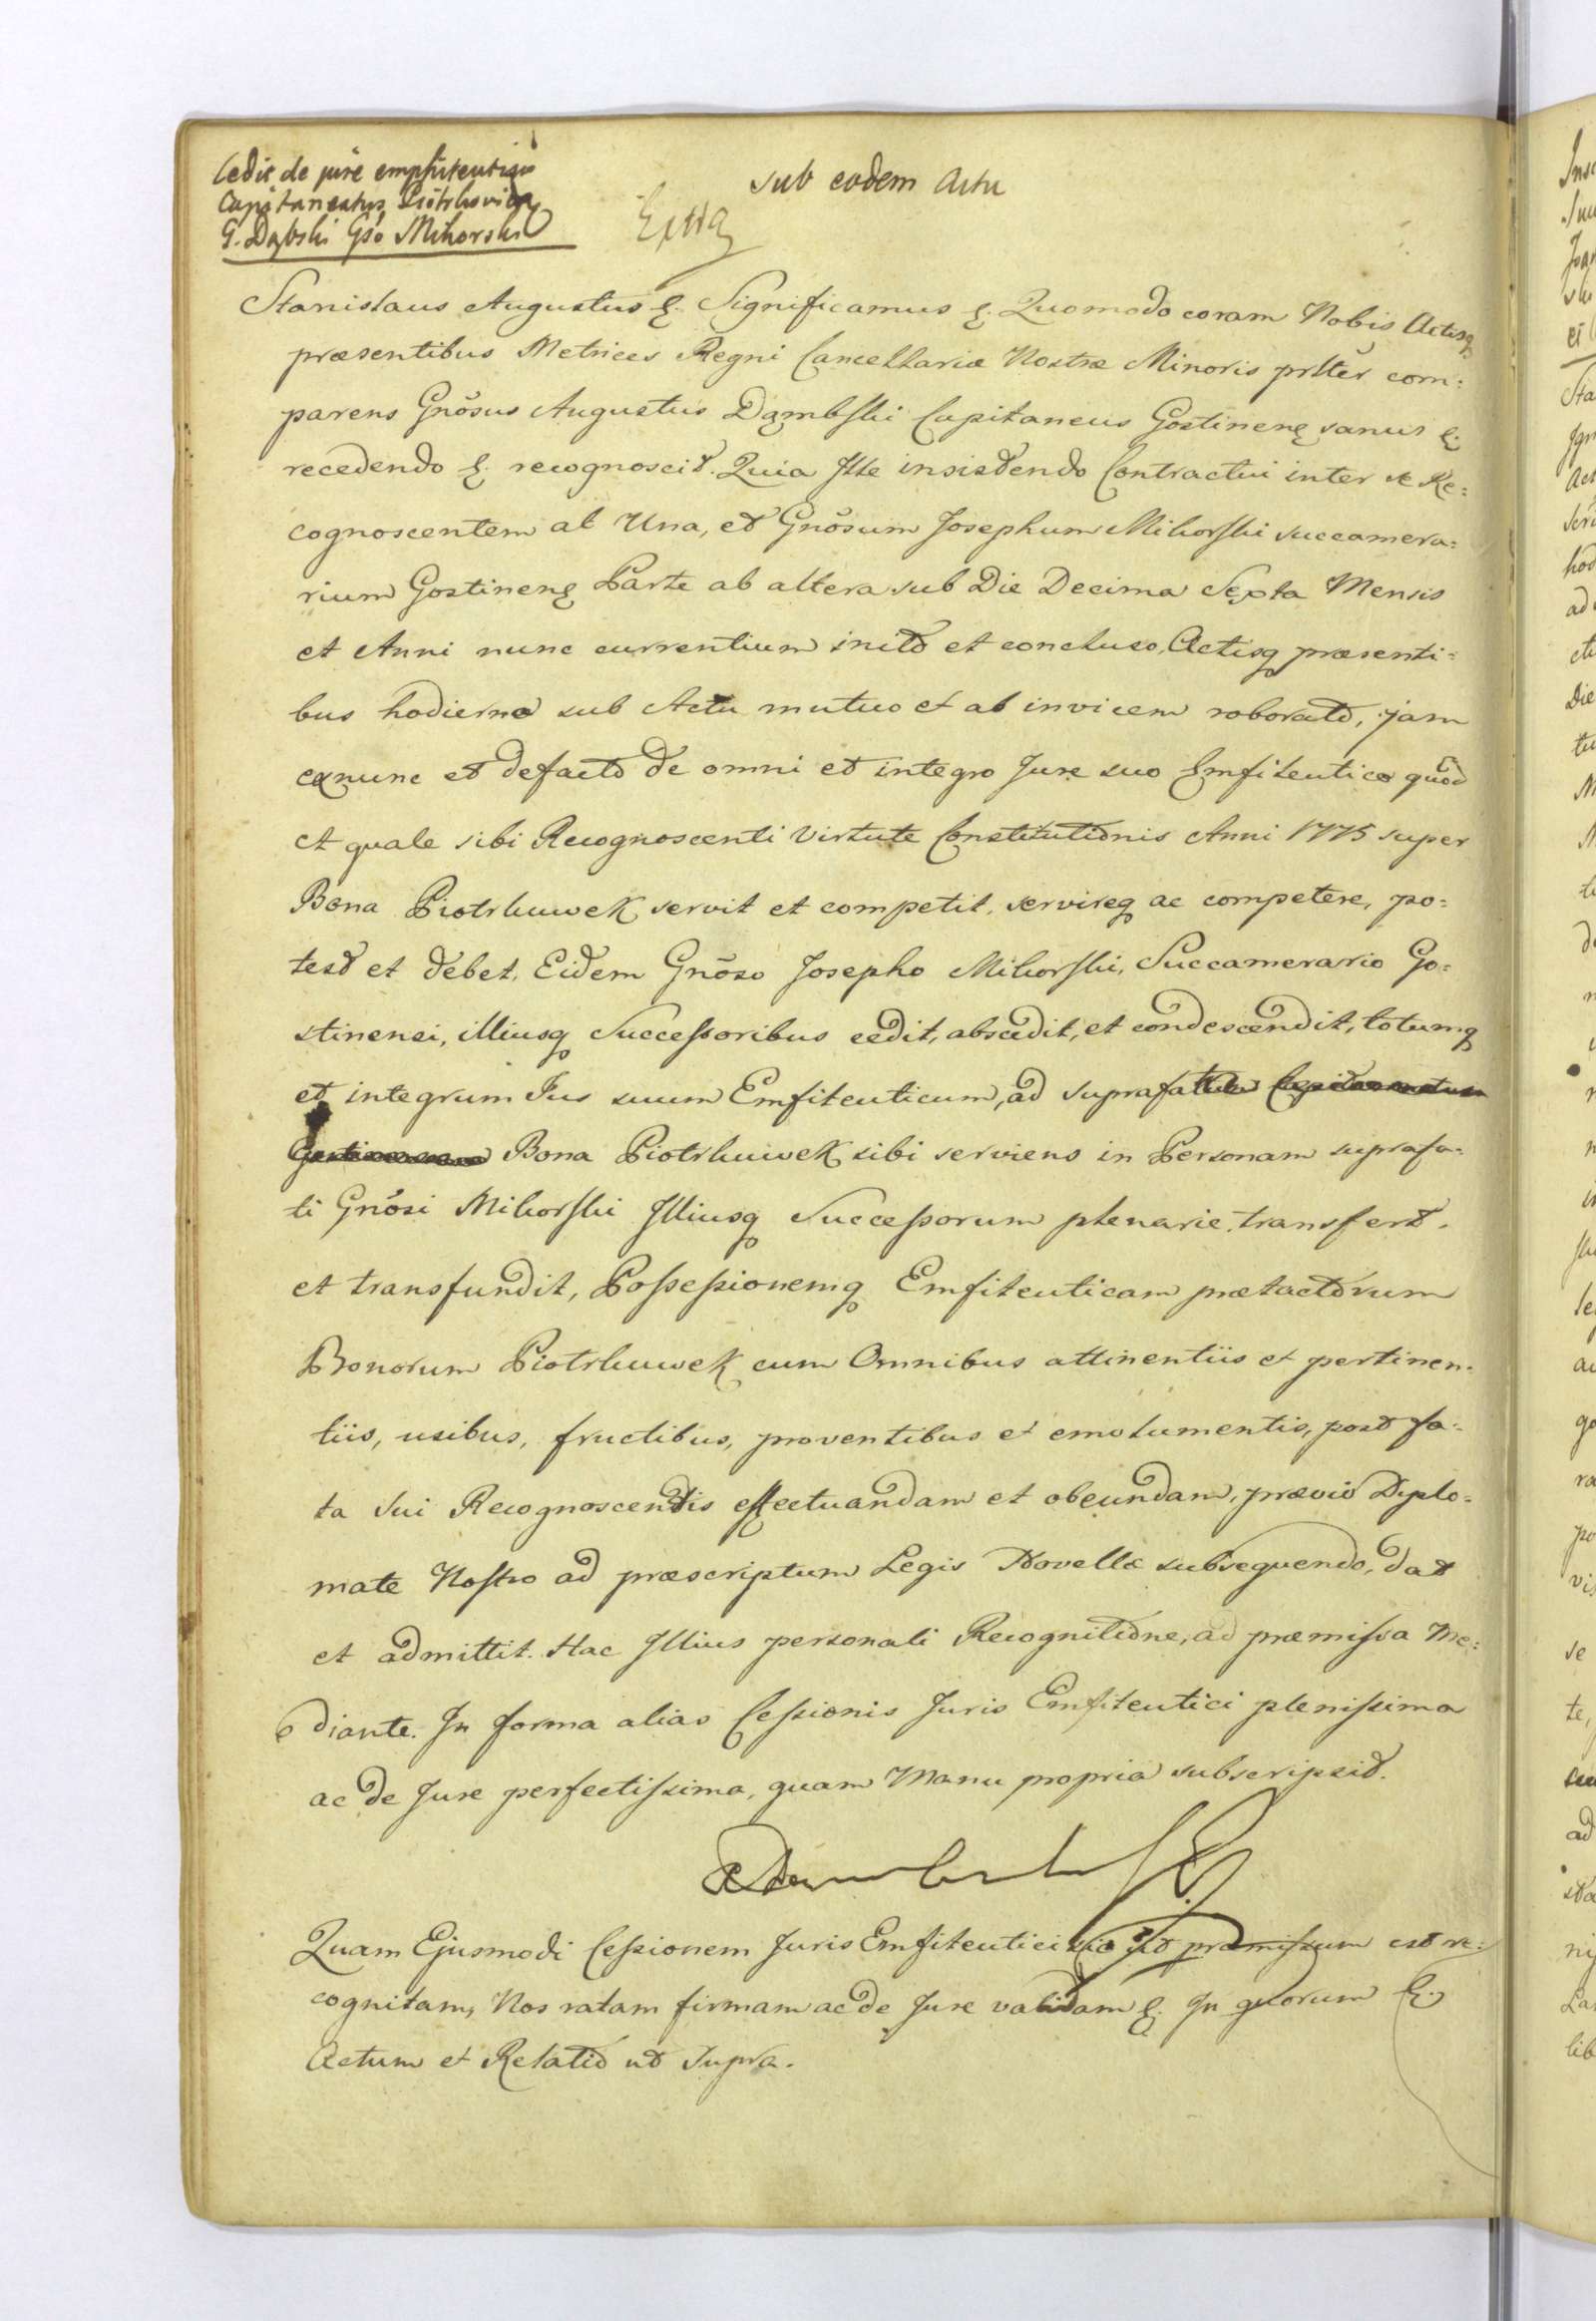 Cedit de jure emphiteutico
Capitaneatus Piotrkoviæ
G. Dąbski Gso Mikorski
sub eodem Actu
Stanislaus Augustus &. Significamus &. Quomodo coram Nobis Actisq
præsentibus Metrices Regni Cancellariæ Nostræ Minoris prlter com:
parens Gnõsus Augustus Dąmbski Capitaneus Gostinenę sanus &.
recedendo &. recognoscit. Quia Ille insistendo Contractui inter se Re:
cognoscentem ab Una, et Gnõsum Josephum Mikorski succamera:
rium Gostinenę Parte ab altera sub Die Decima Sexta Mensis
et Anni nunc currentium inito et concluso, Actisq præsenti:
bus hodierno sub Actu mutuo et ab invicem roborato, jam
exnunc et defacto de omni et integro Jure suo Emfiteutico quod
et quale sibi Recognoscenti Virtute Constitutionis Anni 1775 super
Bona Piotrkuwek servit et competit, servireq ac competere, po:
test et debet, Eidem Gnõso Josepho Mikorski, Succamerario Go:
stinensi, illiusq Successoribus cedit, abscedit, et condescendit, totumq
et integrum Jus suum Emfiteuticum, ad suprafata Capitaneatum
Gostinensem Bona Piotrkuwek sibi serviens in Personam suprafa:
ti Gnõsi Mikorski Illiusq Successorum plenarie transfert.
et transfundit, Possessionemq Emfiteuticam prætactorum
Bonorum Piotrkuwek cum Omnibus attinentiis et pertinen:
tiis, usibus, fructibus, proventibus et emolumentis, post fa:
ta sui Recognoscentis effectuandam et obeundam, prævio Diplo:
mate Nostro ad præscriptum Legis Novellæ subsequendo, dat
et admittit. Hac Illius personali Recognitione, ad præmissa Me:
diante. In forma alias Cessionis Juris Emfiteutici plenissima
ac de Jure perfectissima, quam Manu propria subscripsit.
Quam Ejusmodi Cessionem Juris Emfiteutici sic ut præmissum est re:
cognitam, Nos ratam firmam ac de Jure validam &. In quorum &.
Actum et Relatio ut supra.